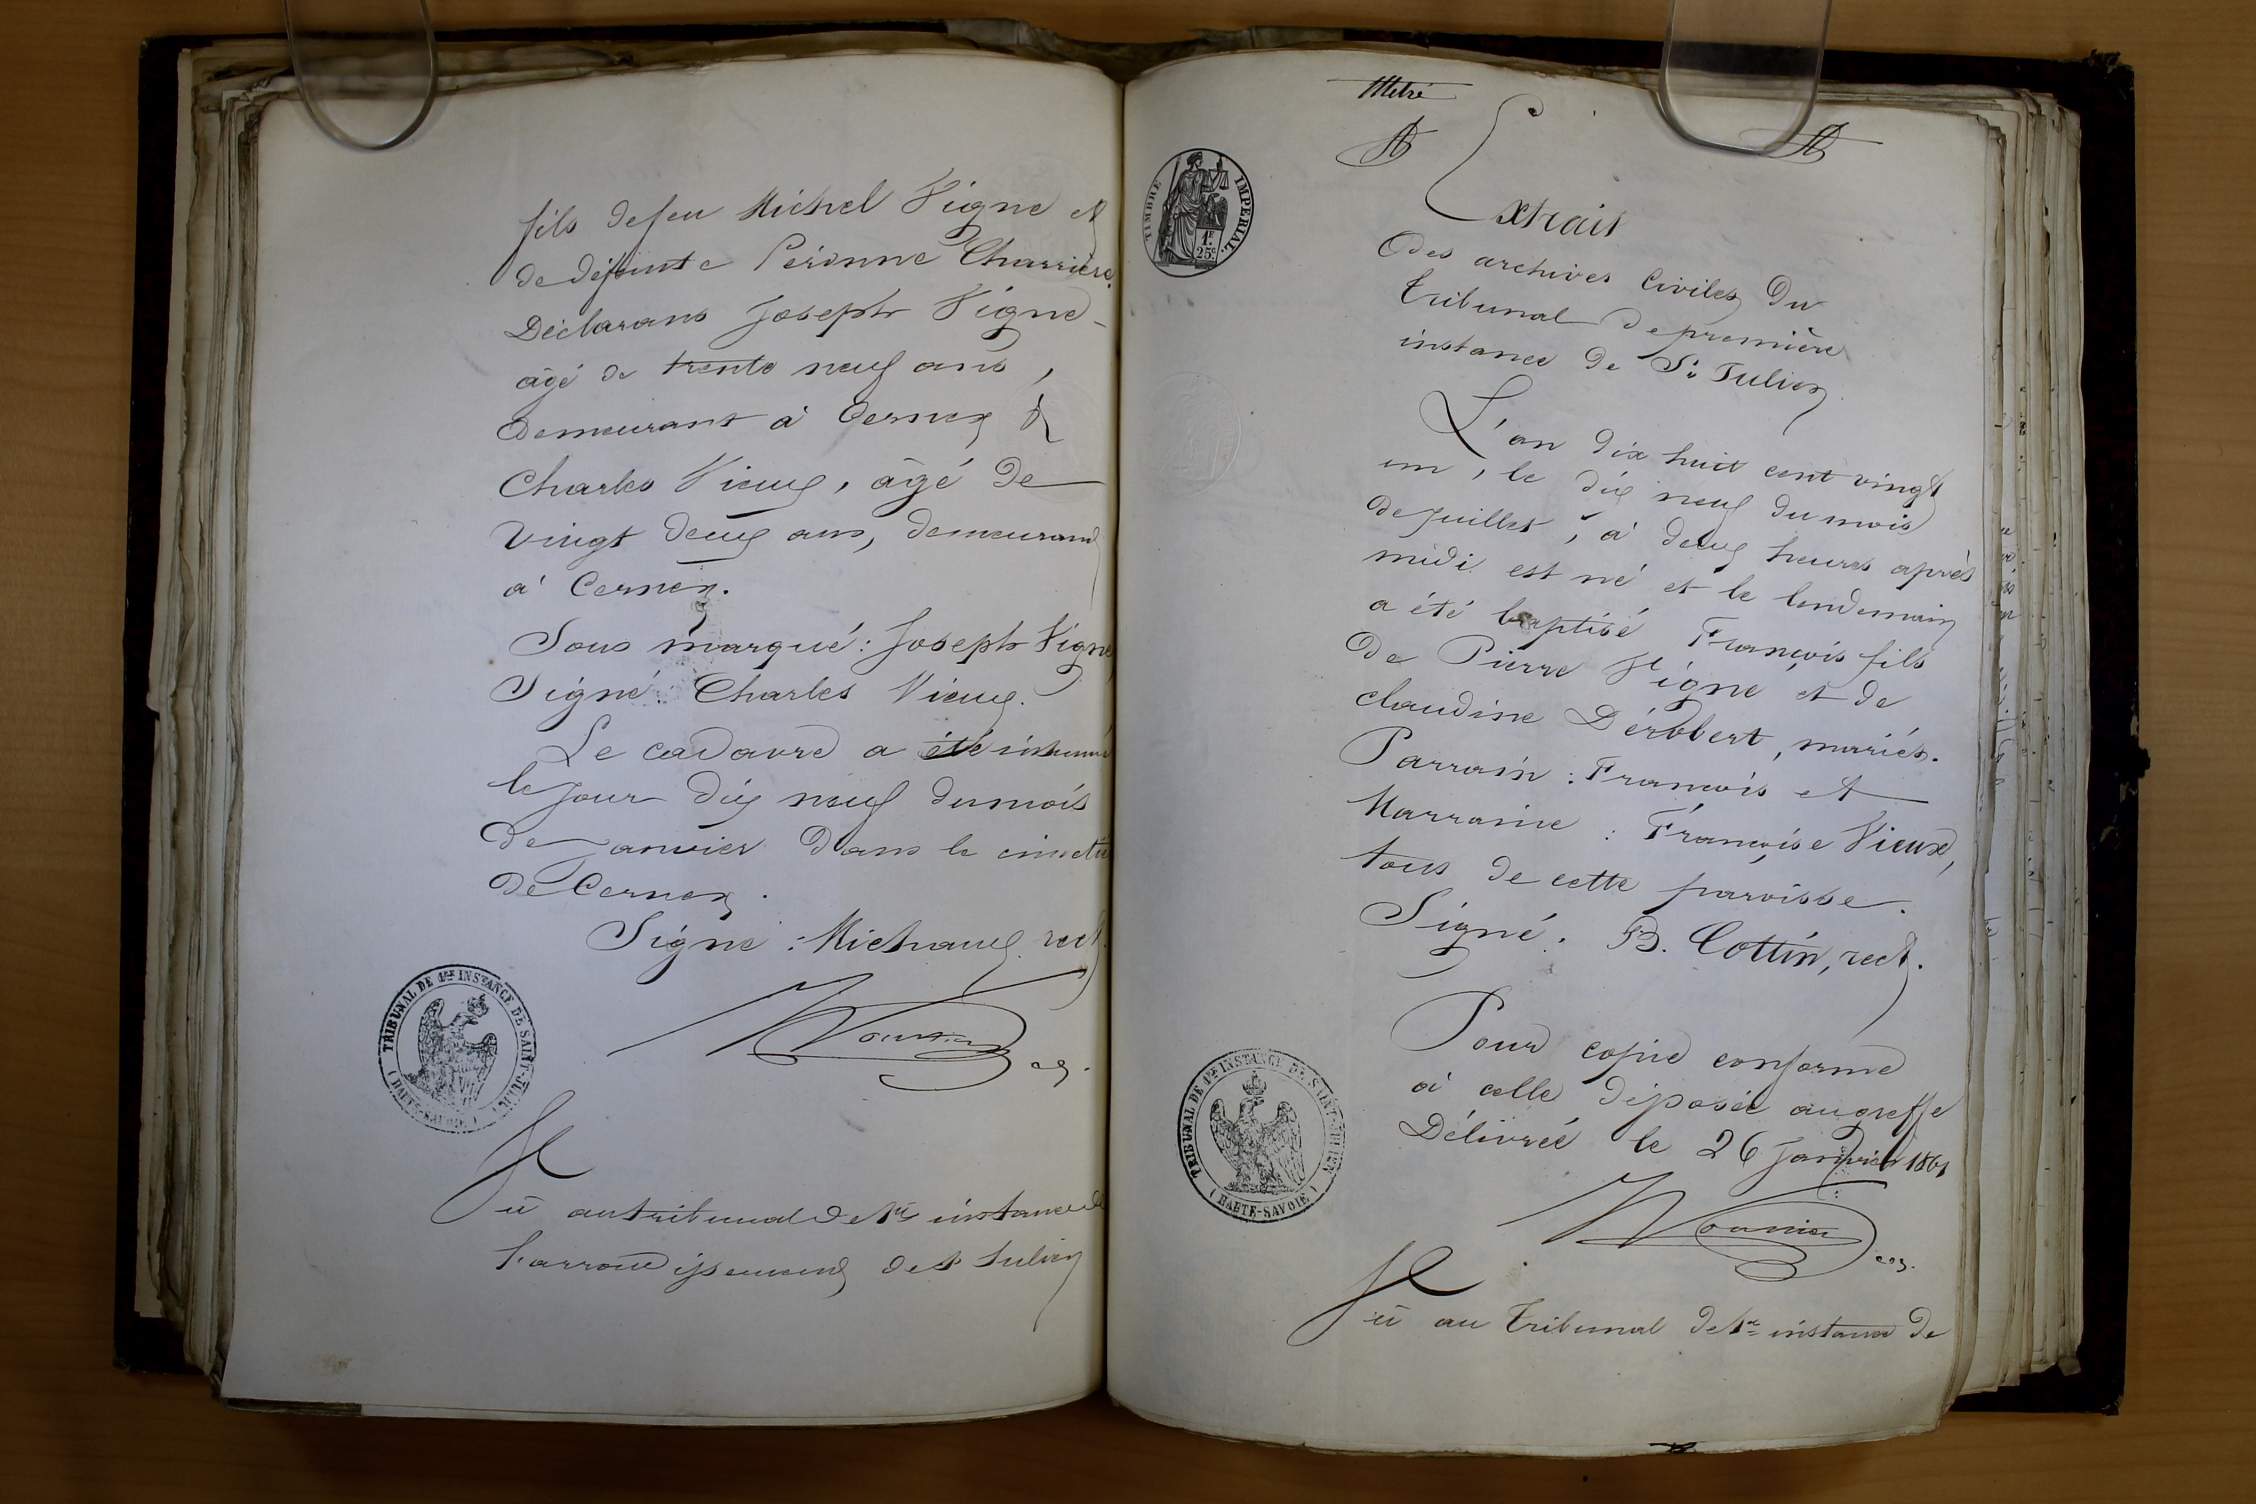 fils de feu Michel Vigne et
de défunte Péronne Charrière.
Déclarans Joseph Vigne
âgé de trente neuf ans,
demeurant à Cernex &
Charles Vieux, âgé de
vingt deux ans, demeurant
à Cernex.
Sous marqué : Joseph Vigne
Signé : Charles Vieux.
Le cadavre a été inhumé
le jour dix neuf du mois
de Janvier dans le cimetière
de Cernex.
Signé : Michaux rect.
TRIBUNAL DE 1ère INSTANCE DE SAINT-JULIEN
(HAUTE-SAVOIE)
Vû au tribunal de 1re instance de
l'arrondissement de St Julien
TIMBRE IMPÉRIAL.
1F.
25c.
Extrait
des archives Civiles du
tribunal de première
instance de St Julien
L'an dix huit cent vingt
un, le dix neuf du mois
de juillet, à deux heures après
midi est né et le lendemain
a été baptisé François fils
de Pierre Vigne et de
claudine Dérobert, mariés.
Parrain : François et
Marraine : Françoise Vieux,
tous de cette paroisse.
Signé. B. Cottin, rect.
Pour copie conforme
à celle déposée au greffe
Délivrée le 26 Janvier 1861
TRIBUNAL DE 1ère INSTANCE DE SAINT-JULIEN
(HAUTE-SAVOIE)
Vû au Tribunal de 1re instance de